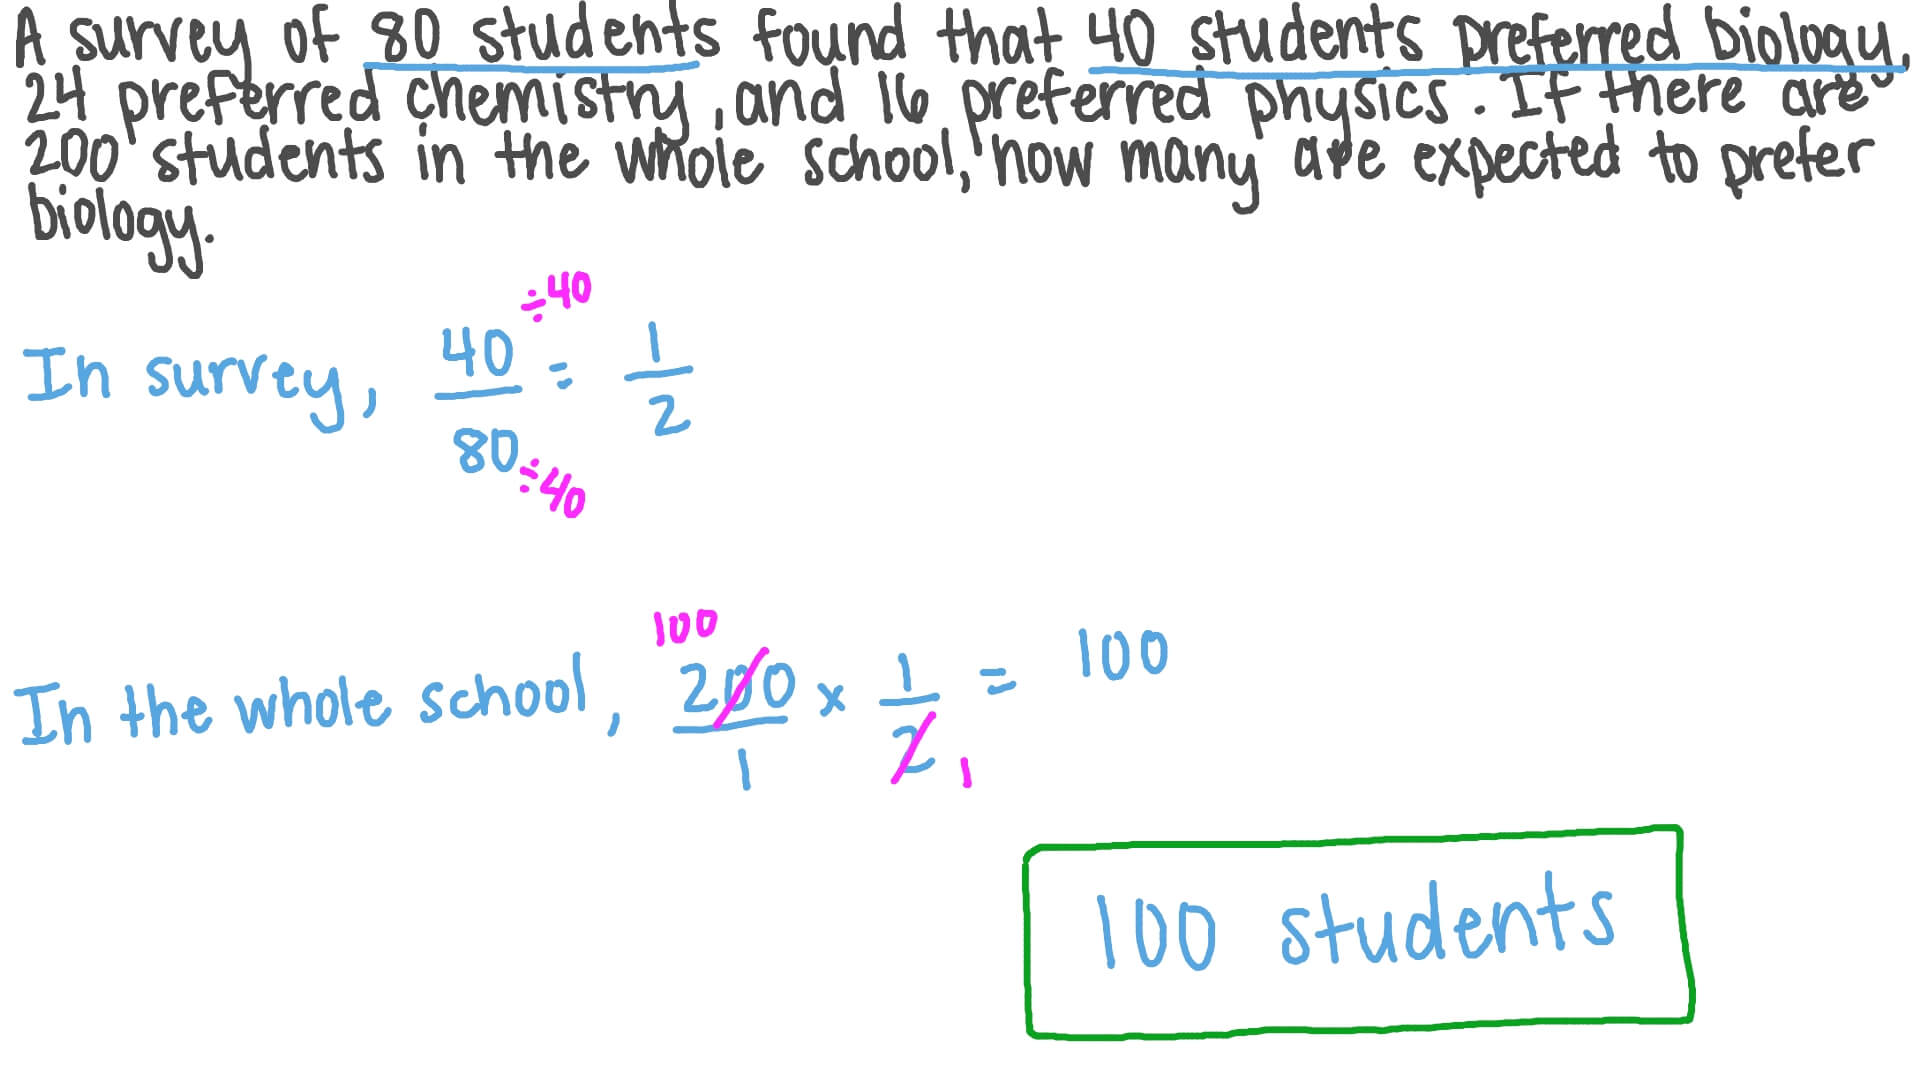 A survey of 80 students found that 40 students preferred biology,
24 preferred chemistry, and 16 preferred physics. If there are
200 students in the whole school, how many are expected to prefer
biology.
÷40
In survey, 40/80 = 1/2
÷40
100
In the whole school, 200/1 x 1/2 = 100
1
100 students